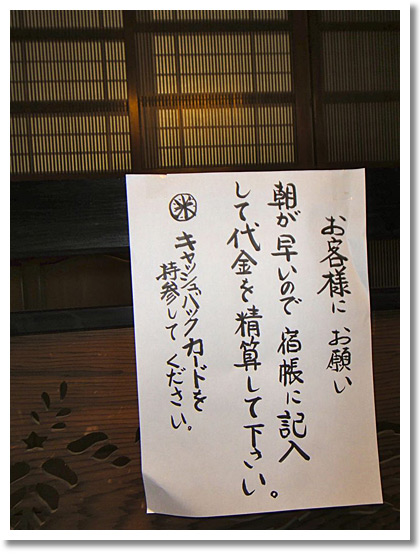 お客様に お願い
朝が早いので 宿帳に記入
して代金を精算して下さい。
㊍ キャッシュバックカードを
持参してください。